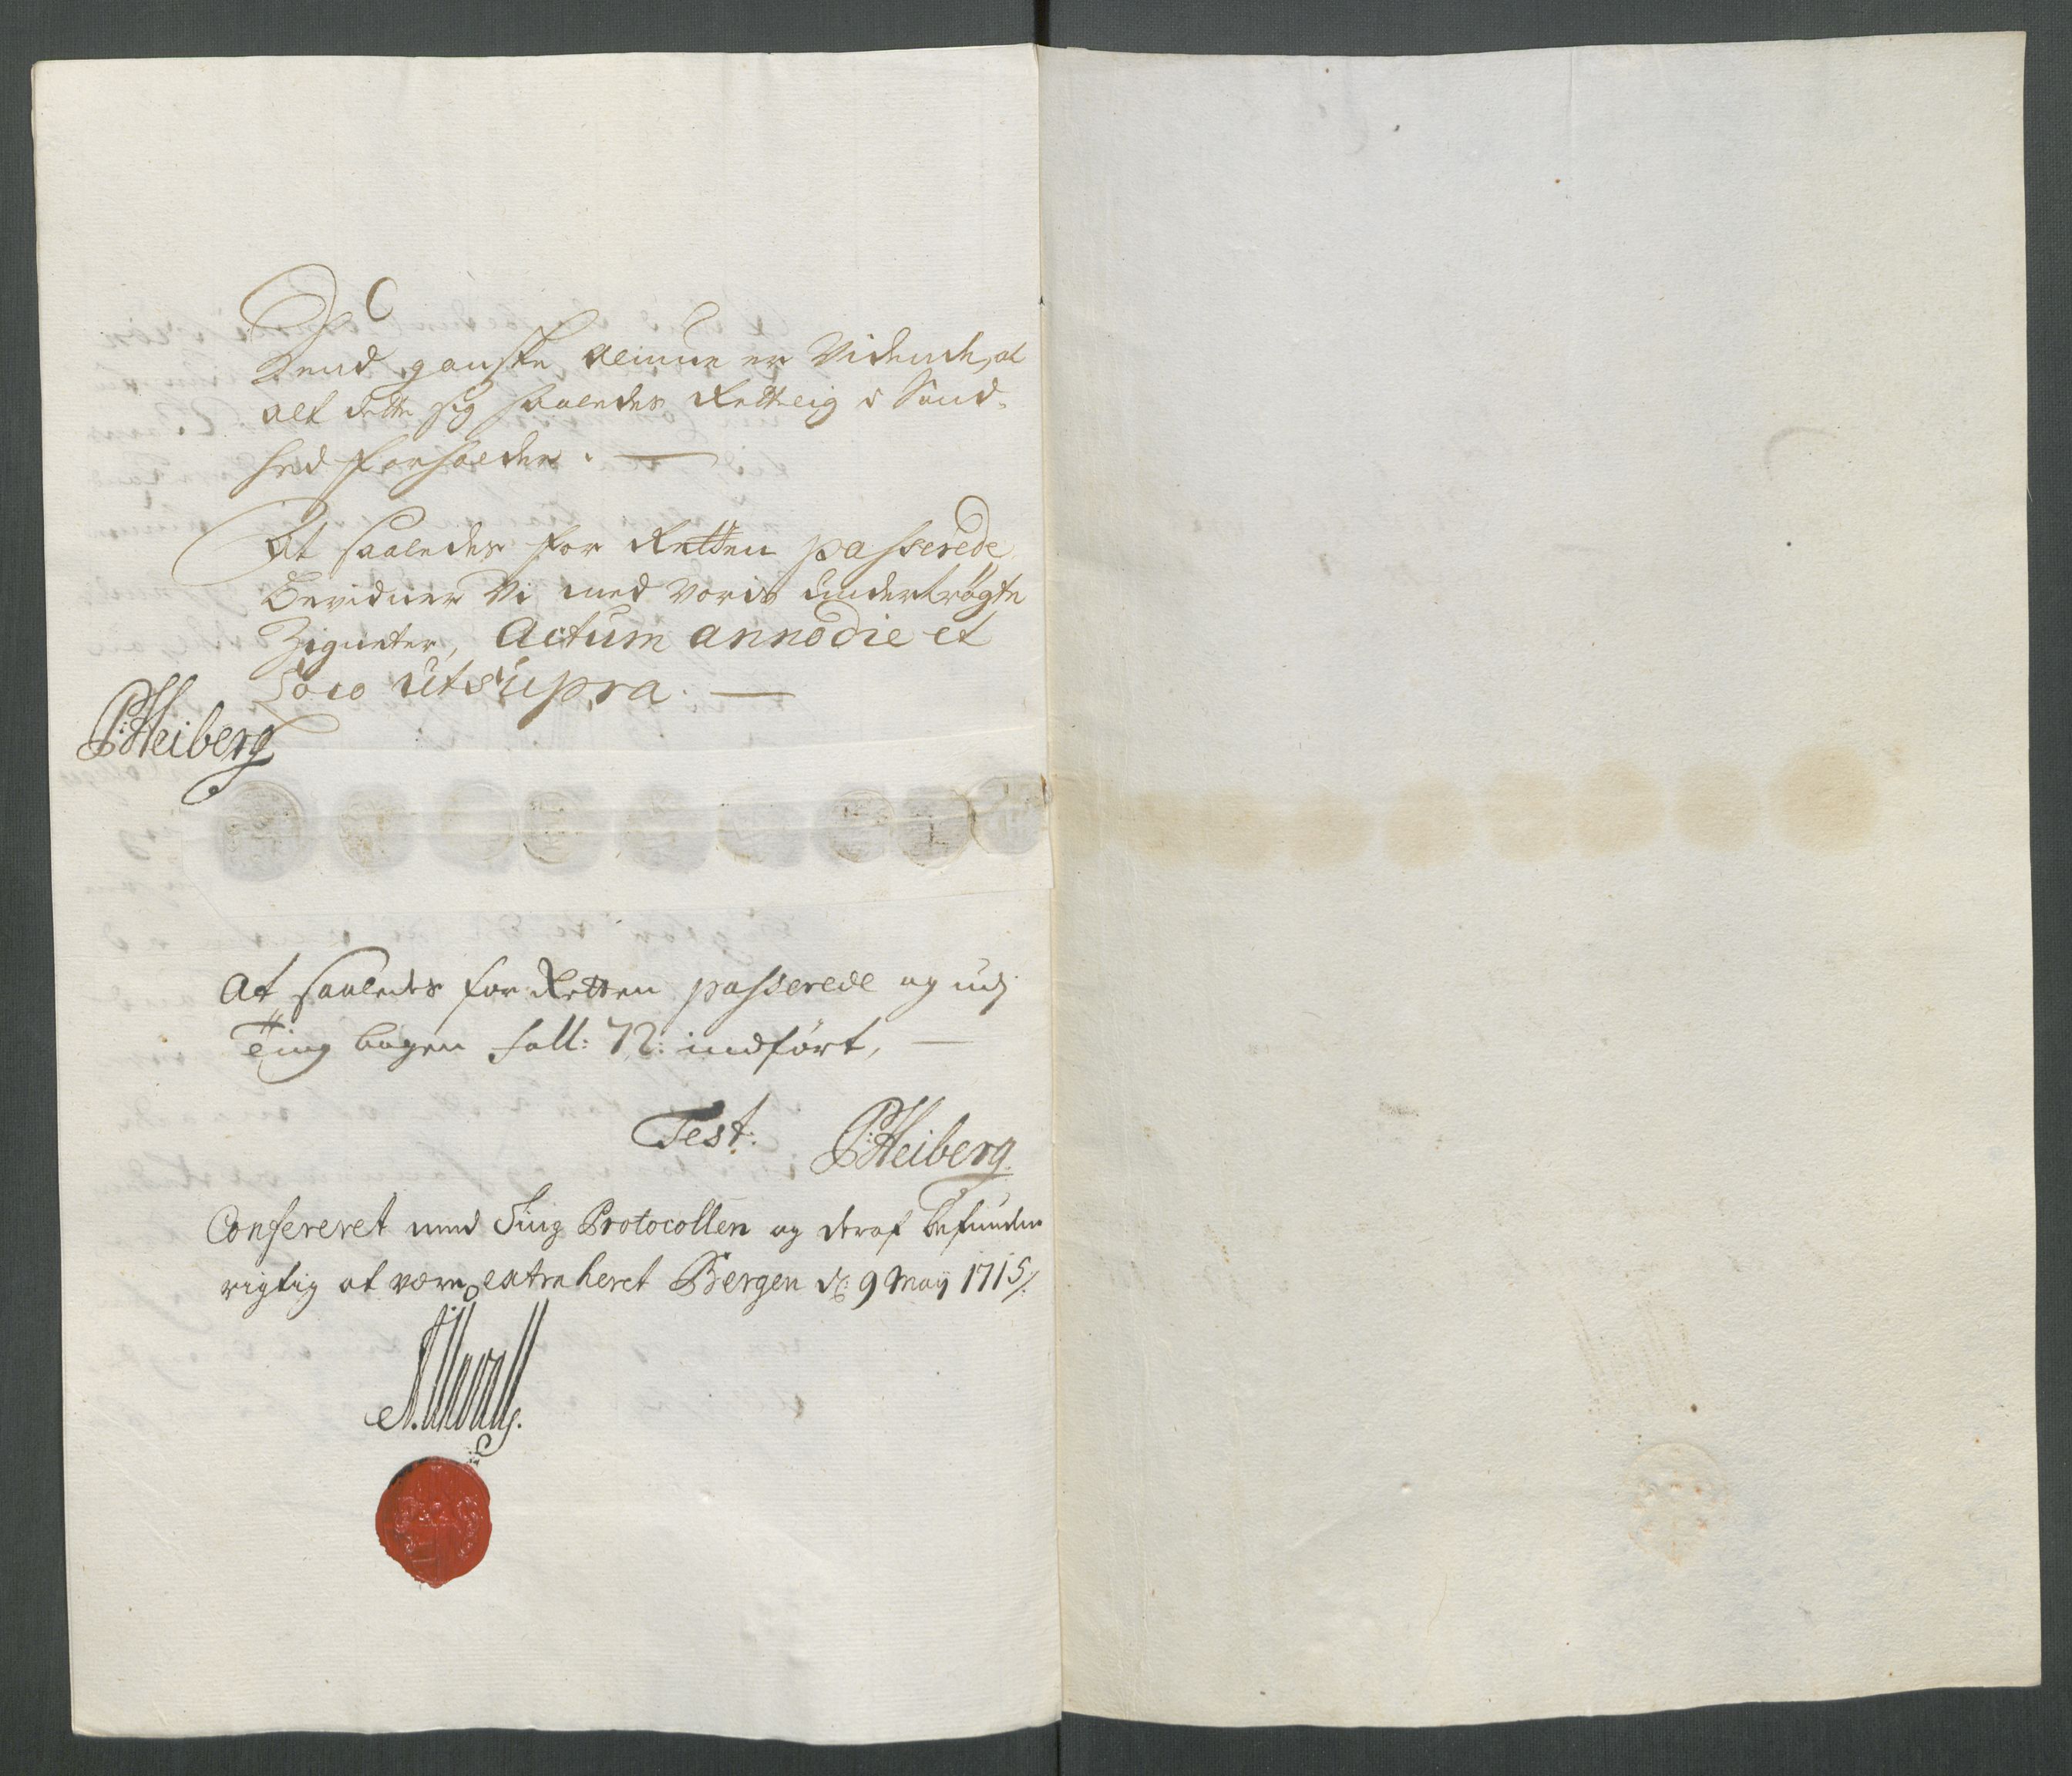 Dend ganske Almue er Vidende, at
alt dette sig saaledes Rettelig i Sand-
hed forholder. —
At saaledes for Retten passerede
Bevidner Vi med Voris undertrögte
Zigneter, Actum anno die et
Loco ut supra. —
P: Heiberg
At saaledes for Retten passerede og udj
Ting bogen foll: 72: indført, —
Test: P: Heiberg
Confereret med Ting Protocollen og deraf befunden
rigtig at være extraheret Bergen d: 9 Maÿ 1715/: